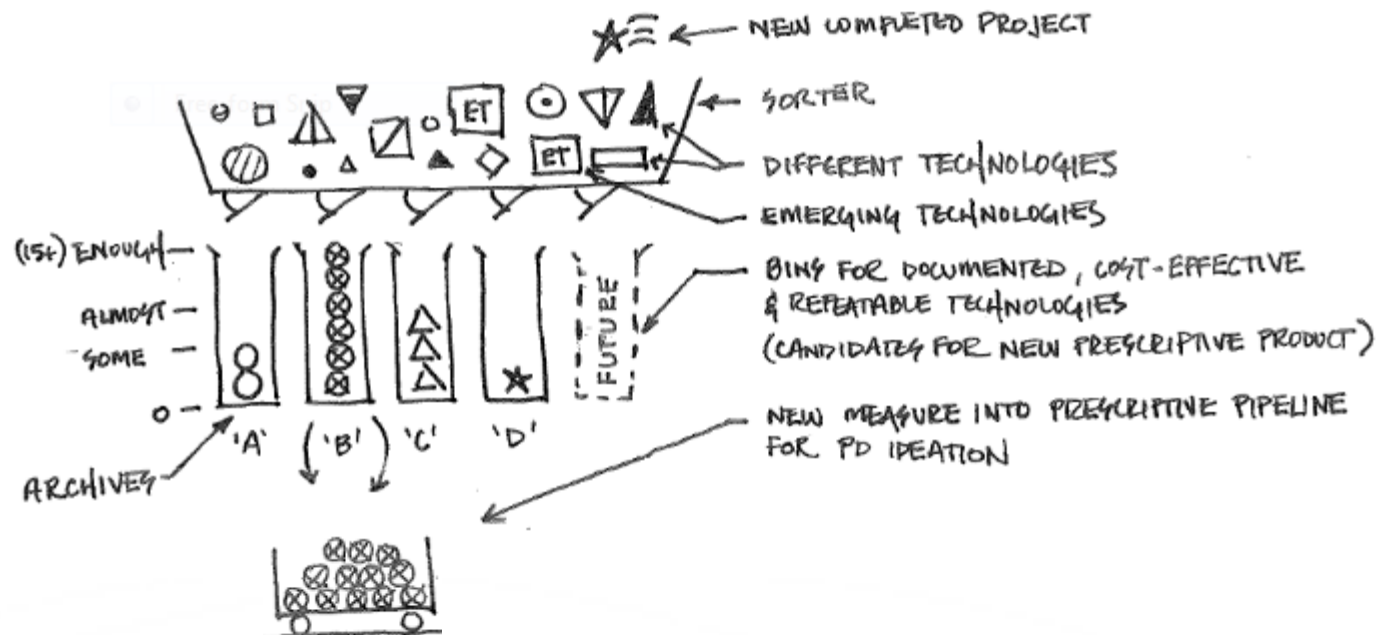 NEW COMPLETED PROJECT
SORTER
ET
ET
DIFFERENT TECHNOLOGIES
EMERGING TECHNOLOGIES
(15+) ENOUGH
ALMOST
SOME
0
FUTURE
BINS FOR DOCUMENTED, COST-EFFECTIVE
& REPEATABLE TECHNOLOGIES
(CANDIDATES FOR NEW PRESCRIPTIVE PRODUCT)
'A'
'B'
'C'
'D'
ARCHIVES
NEW MEASURE INTO PRESCRIPTIVE PIPELINE
FOR PD IDEATION